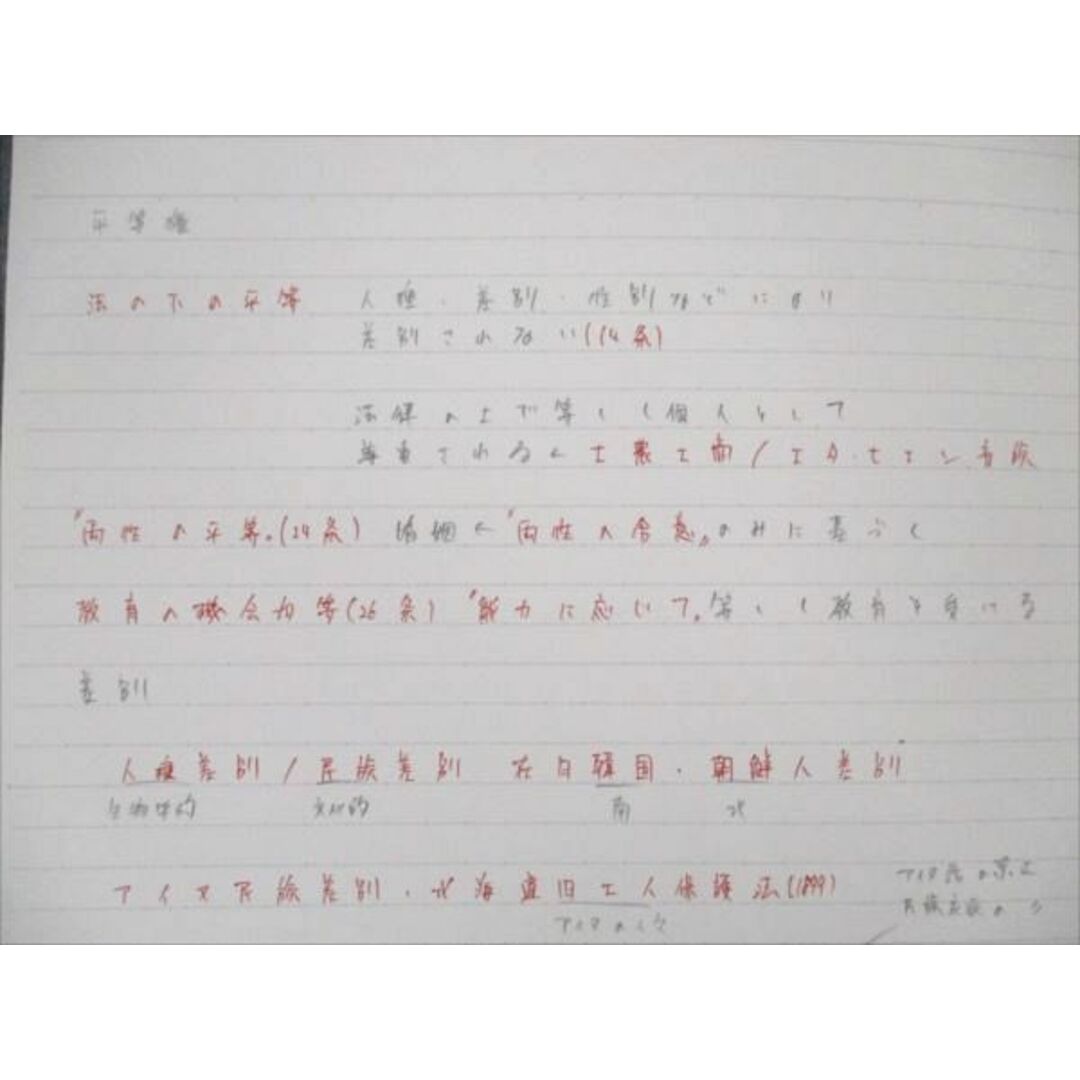 平等権
法の下の平等 人種・差別・性別などにより
差別されない(14条)
法律の上で等しく個人として
尊重される←士農工商/エタ・ヒニン・貴族
"両性の平等"(24条) 婚姻←"両性の合意"のみに基づく
教育の機会均等(26条) "能力に応じて"等しく教育を受ける
差別
人種差別/民族差別 在日韓国・朝鮮人差別
生物学的 文化的 南 北
アイヌ民族差別・北海道旧土人保護法(1899)
アイヌのイク
アイヌ語の禁止
民族